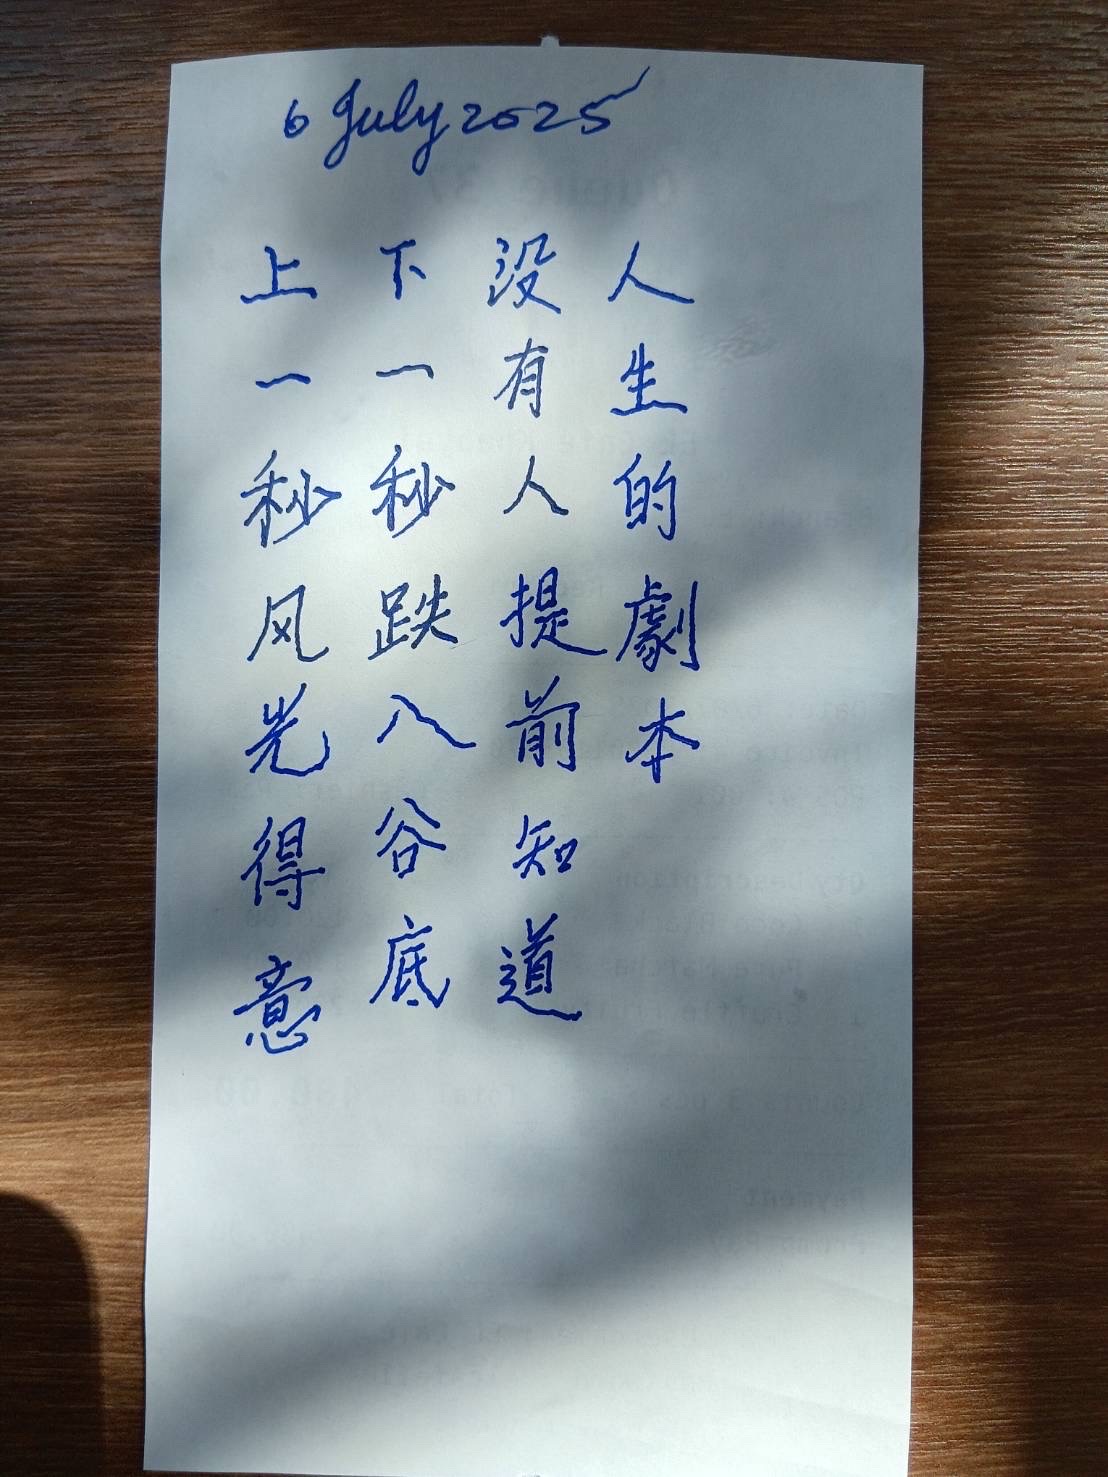 6 July 2025
上一秒风光得意
下一秒跌入谷底
没有人提前知道
人生的劇本